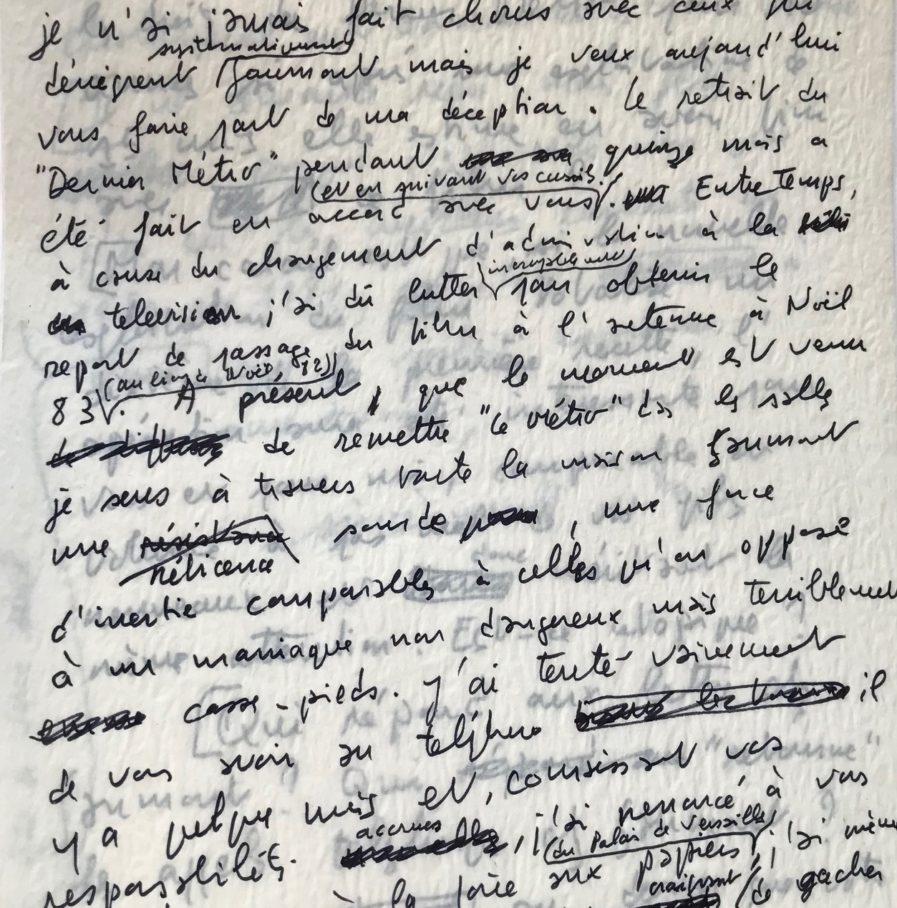 je n'ai jamais fait chorus avec ceux qui
systématiquement
dénigrent Gaumont mais je veux aujourd'hui
vous faire part de ma déception. Le retrait du
"Dernier Métro" pendant quinze mois a
(et en suivant vos conseils)
été fait en accord avec vous. Entre Temps,
à cause du changement d'administration à la
television j'ai dû lutter pour obtenir le
report de passage du film à l'antenne à Noël
(au lieu de Noël 82)
83. A présent, que le moment est venu
de remettre "le Métro" ds les salles
je sens à travers toute la maison Gaumont
une résistance sourde, une force
réticence
d'inertie comparables à celles qu'on oppose
à un maniaque non dangereux mais terriblement
casse-pieds. J'ai tenté vainement
de vous avoir au téléphone il
y a quelque mois et, connaissant vos
accrues
responsabilités, j'ai renoncé à vous
(du Palais de Versailles)
à la foire aux papiers, j'ai même
craignant de gacher